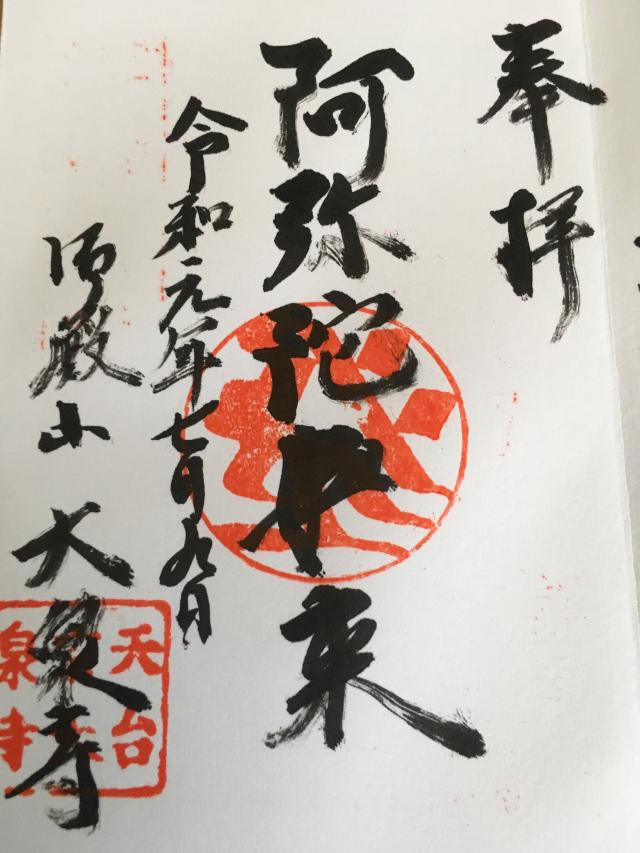 奉拝
阿弥陀如来
令和元年七月九日
御殿山 大泉寺
天台
泉寺